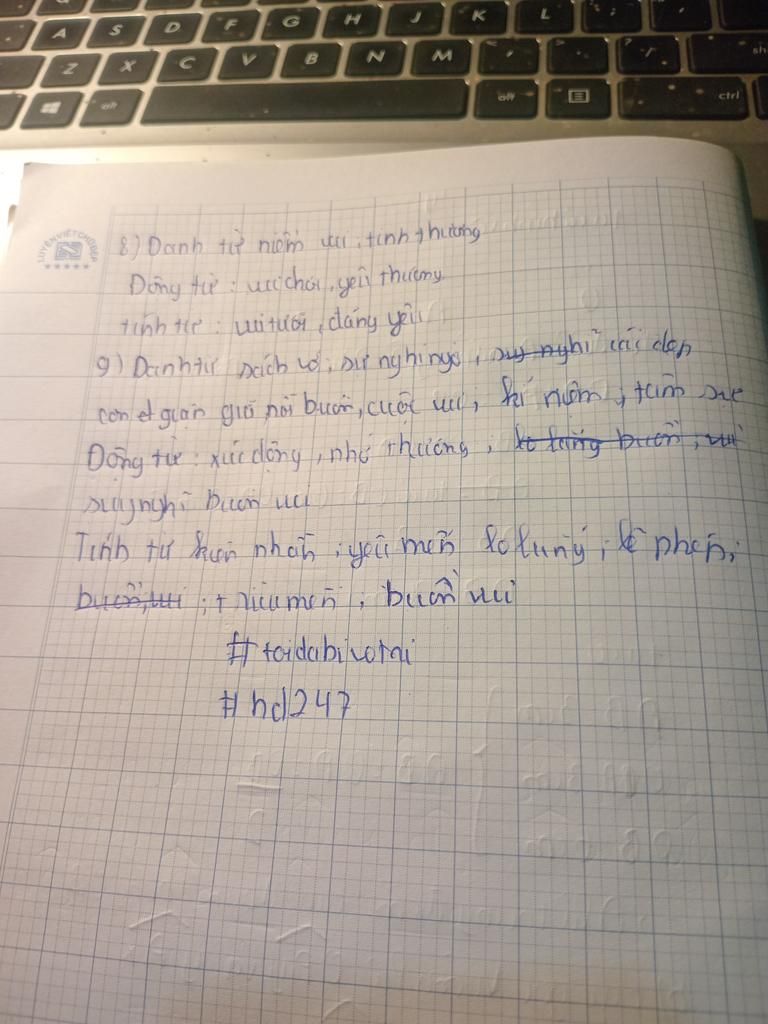 A S D F G H J K L
Z X C V B N M
alt alt ctrl
LUYỆN VIẾT CHỮ ĐẸP
8) Danh từ niềm vui, tình thương
Động từ : vui chơi, yêu thương
tính từ : vui tươi, đáng yêu
9) Danh từ sách vở; sự nghi ngờ, suy nghĩ cái đẹp
con giận nỗi buồn, cuộc vui, kỉ niệm, tâm sự
Động từ : xúc động, nhớ thương, lo lắng buồn, vui
suy nghĩ buồn vui
Tính từ nhẫn, yêu mến lo lắng, lễ phép,
buồn, vui ; trìu mến, buồn vui
#toidabivotri
#hd247